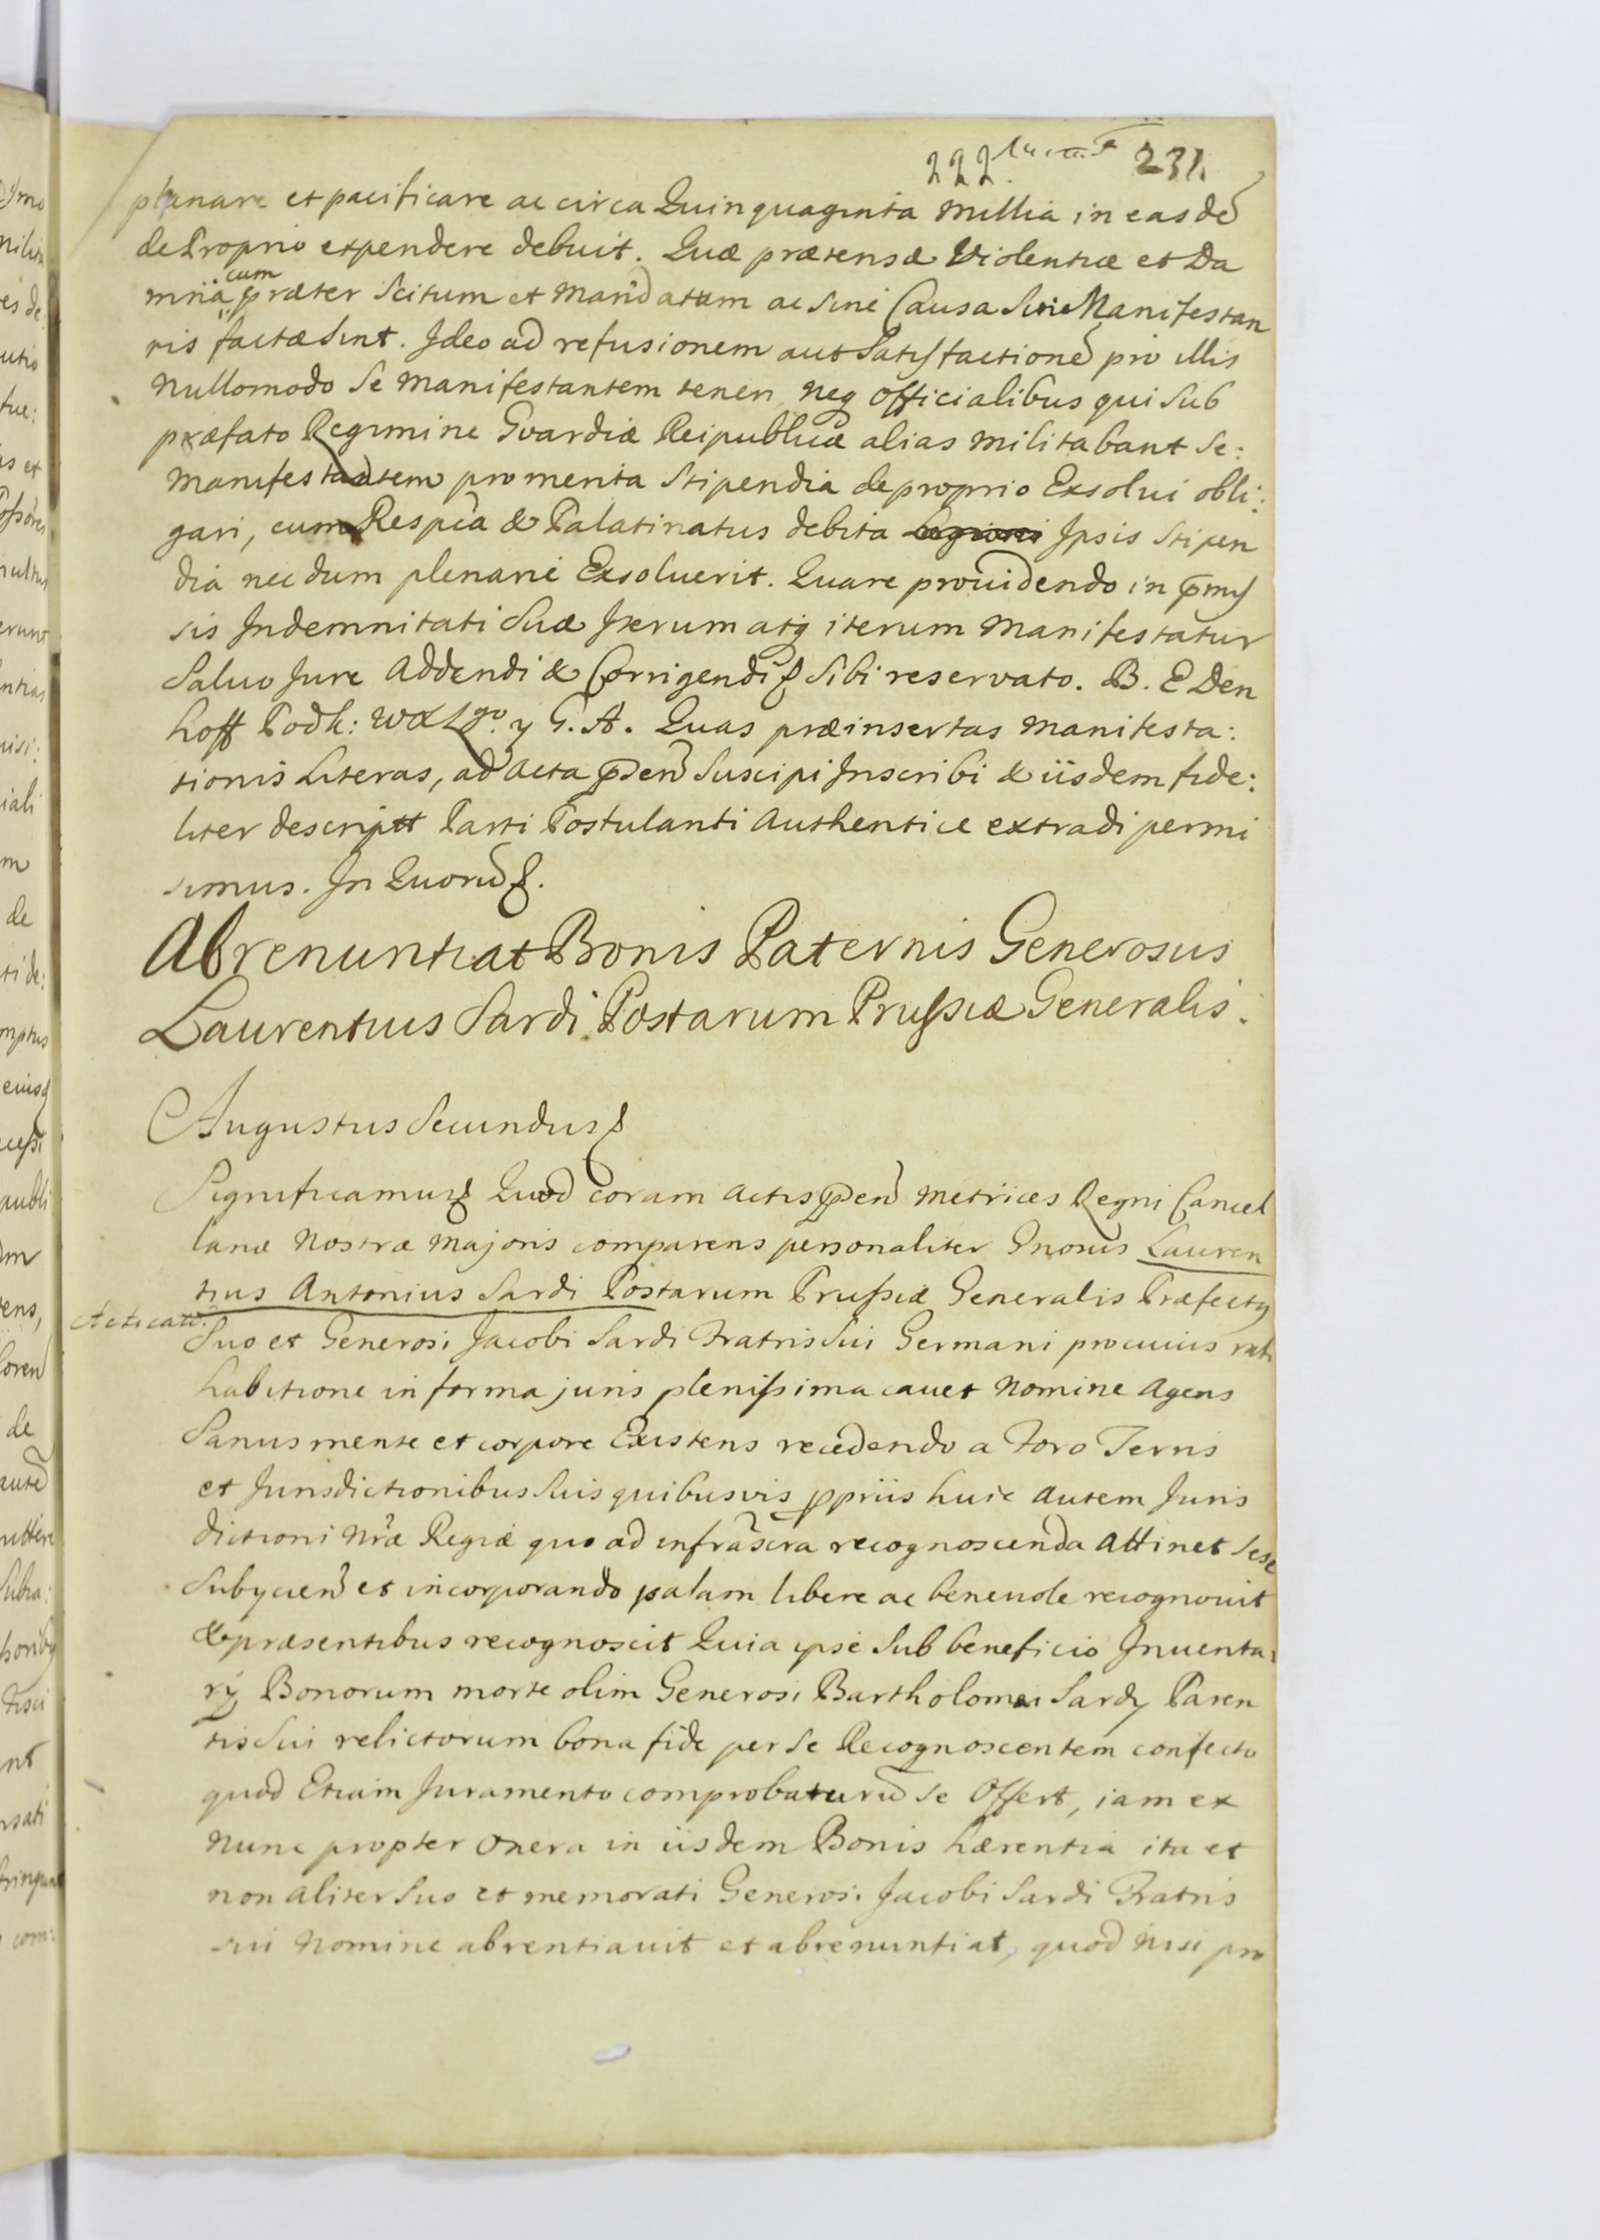 222. 231.
planare et pacificare ac circa Quinquaginta Millia in easdē
de Proprio expendere debuit. Quæ prætensæ Violentiæ et Da
mna cum præter Scitum et Mandatum ac Sine Causa Sui Manifestan
tis factæ sint. Ideo ad refusionem aut Satisfactionē pro illis
Nullomodo Se Manifestantem teneri neq Officialibus qui Sub
præfato Regimine Gvardiæ Reipublicæ alias militabant Se:
Manifestantem pro merita Stipendia de proprio Exsolui obli:
gari, cum Respca & Palatinatus debita Ipsis Stipen
dia nec dum plenarie Exsoluerit. Quare prouidendo in præmis
sis Indemnitati Suæ Iterum atq iterum Manifestatur
Saluo Jure Addendi & Corrigendi Sibi reservato. B. E Den
hoff Podk: W X L go. y G. A. Quas præinsertas Manifesta:
tionis Literas, ad Acta p̄den̄ Suscipi Inscribi & iisdem fide:
liter descriptt Parti Postulanti Authentice extradi permi
simus. In Quorū.
Abrenuntiat Bonis Paternis Generosus
Laurentius Sardi Postarum Prussiæ Generalis.
Augustus Secundus
Significamus Quod coram Actis p̄den̄ Metrices Regni Cancel
lariæ Nostræ Majoris comparens personaliter Gnosus Lauren
tius Antonius Sardi Postarum Prussiæ Generalis Præfectq
Suo et Generosi Jacobi Sardi Fratris Sui Germani pro cuius rati
habitione in forma juris plenissima cauet Nomine Agens
Sanus mente et corpore Existens recedendo a Foro Terris
et Jurisdictionibus Suis quibusvis ppriis huic Autem Juris
dictioni Nræ Regiæ quo ad infrascra recognoscenda Attinet Sese
Subyciend et incorporando palam libere ac beneuole recognouit
& præsentibus recognoscit Quia ipse Sub beneficio Inuenta:
rÿ Bonorum morte olim Generosi Bartholomæi Sardy Paren
tis Sui relictorum bona fide per Se Recognoscentem confecto
quod Etiam Juramento comprobaturū Se Offert, iam ex
Nunc propter Onera in iisdem Bonis hærentia ita et
non Aliter Suo et memorati Generosi Jacobi Sardi Fratris
sui Nomine abrentiauit et abrenuntiat, quod Nisi pro